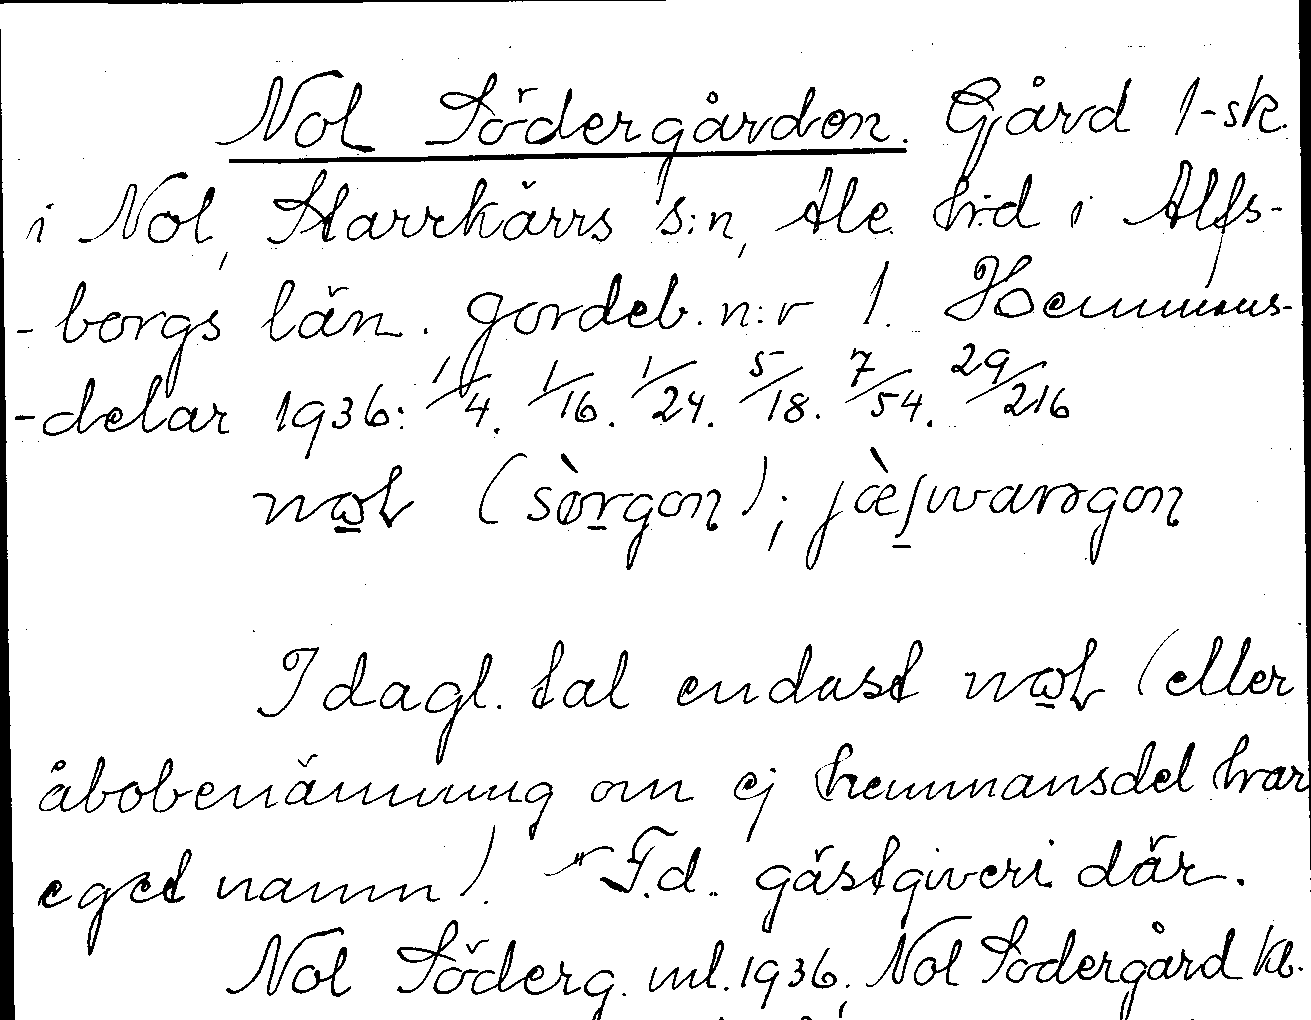 Nol Södergården. Gård 1-sk.
i Nol, Starrkärrs s:n, Ale h:d i Älfs-
-borgs län. Jordeb. n:r 1. Hemmans-
-delar 1936: 1/4. 1/16. 1/24. 5/18. 7/54. 29/216
(sòrgon);
I dagl. tal endast (eller
åbobenämning om ej hemmansdel har
eget namn). F.d. gästgiveri där.
Nol Söderg. ml. 1936, Nol Södergård kb.